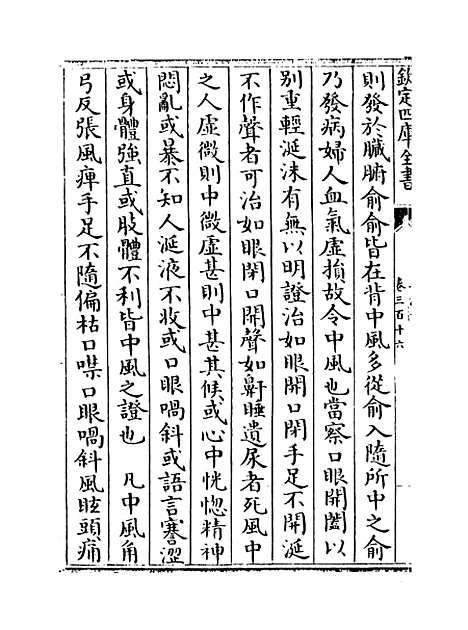 欽定四庫全書
卷三百十六
則發於臟腑俞俞皆在背中風多從俞入隨所中之俞
乃發病婦人血氣虛損故令中風也當察口眼開闔以
別重輕涎沫有無以明證治如眼開口閉手足不開涎
不作聲者可治如眼閉口開聲如鼾睡遺尿者死風中
之人虛微則中微虛甚則中甚其候或心中恍惚精神
悶亂或暴不知人涎液不收或口眼喎斜或語言謇澀
或身體強直或肢體不利皆中風之證也　凡中風角
弓反張風痺手足不隨偏枯口噤口眼喎斜風眩頭痛